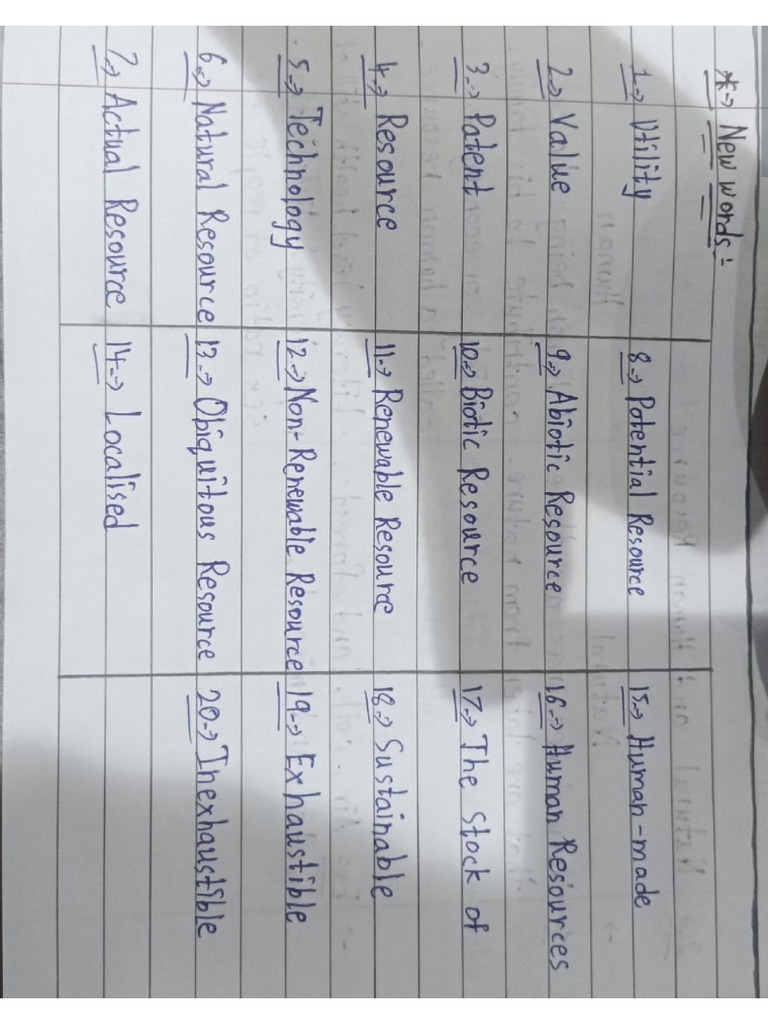 *→ New words:-
1→ Utility
2→ Value
3→ Patent
4→ Resource
5→ Technology
6→ Natural Resource
7→ Actual Resource
8→ Potential Resource
9→ Abiotic Resource
10→ Biotic Resource
11→ Renewable Resource
12→ Non-Renewable Resource
13→ Obiquitous Resource
14→ Localised
15→ Human-made
16→ Human Resources
17→ The Stock of
18→ Sustainable
19→ Exhaustible
20→ Inexhaustible